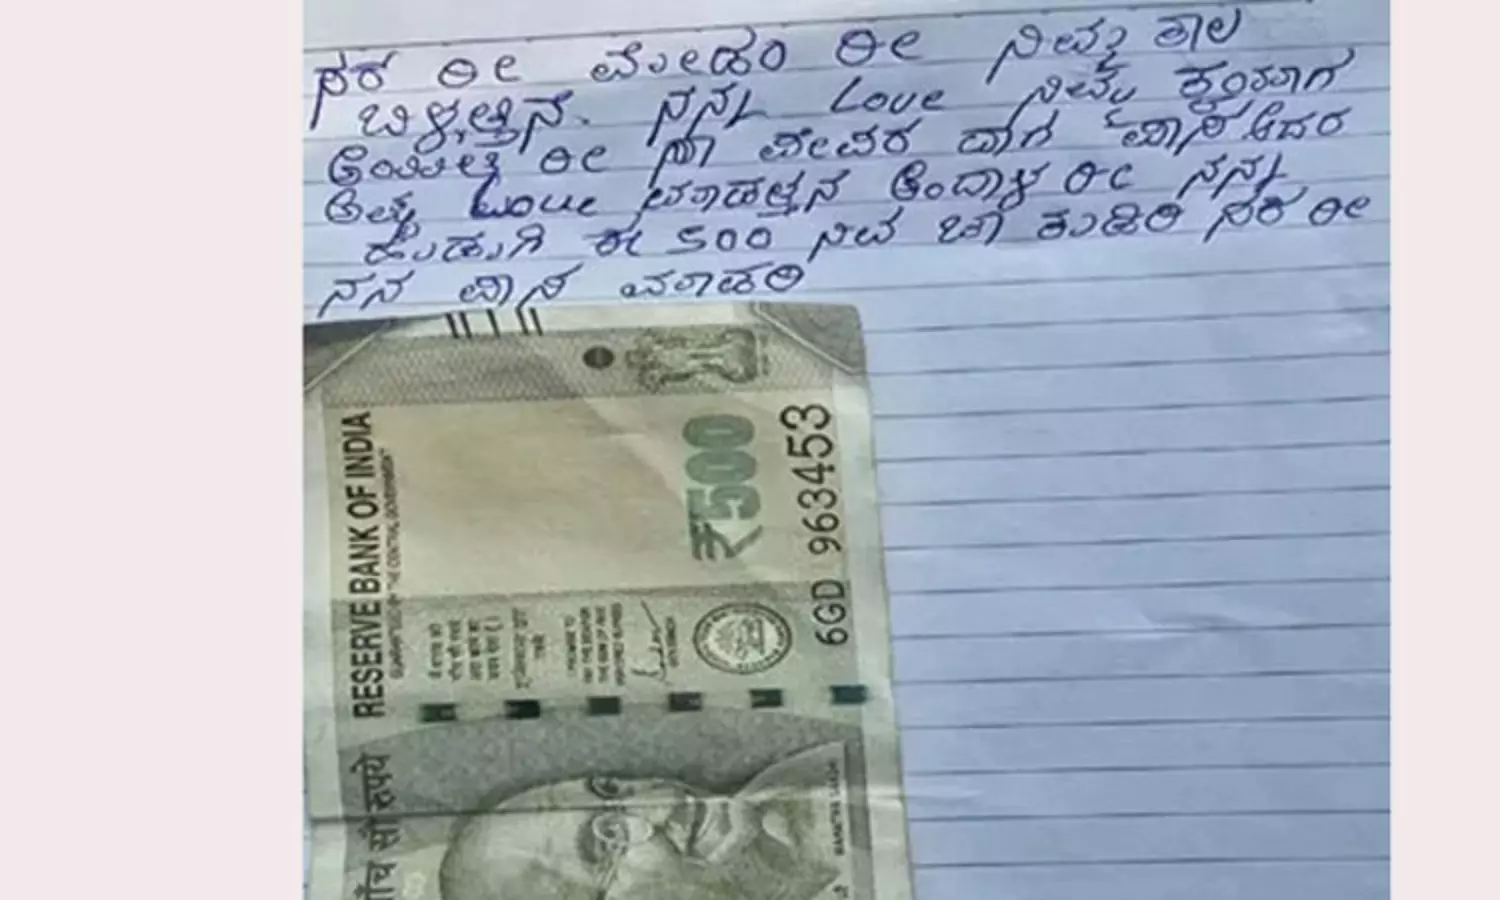 ಸರ ರೀ ಮೇಡಂ ರೀ ನಿಮ್ಮ ಕಾಲ
ಬಿಳ್ಳತ್ತಿನೆ. ನನ್ನ Love ನಿಮ್ಮ
ರೀ ಪೇಪರ ದಾಗ ಪಾಸ ಆದರ
ಅಷ್ಟ Love ಮಾಡತ್ತನ ಅಂದಾಳ ರೀ ನನ್ನ
ಹುಡುಗಿ ಈ 500 ನಿವ ಚಾ ಕುಡಿರಿ ಸರ ರೀ
ನನ ಪಾಸ ಮಾಡರಿ
RESERVE BANK OF INDIA
GUARANTEED BY THE CENTRAL GOVERNMENT
₹500
6GD 963453
पाँच सौ रुपये